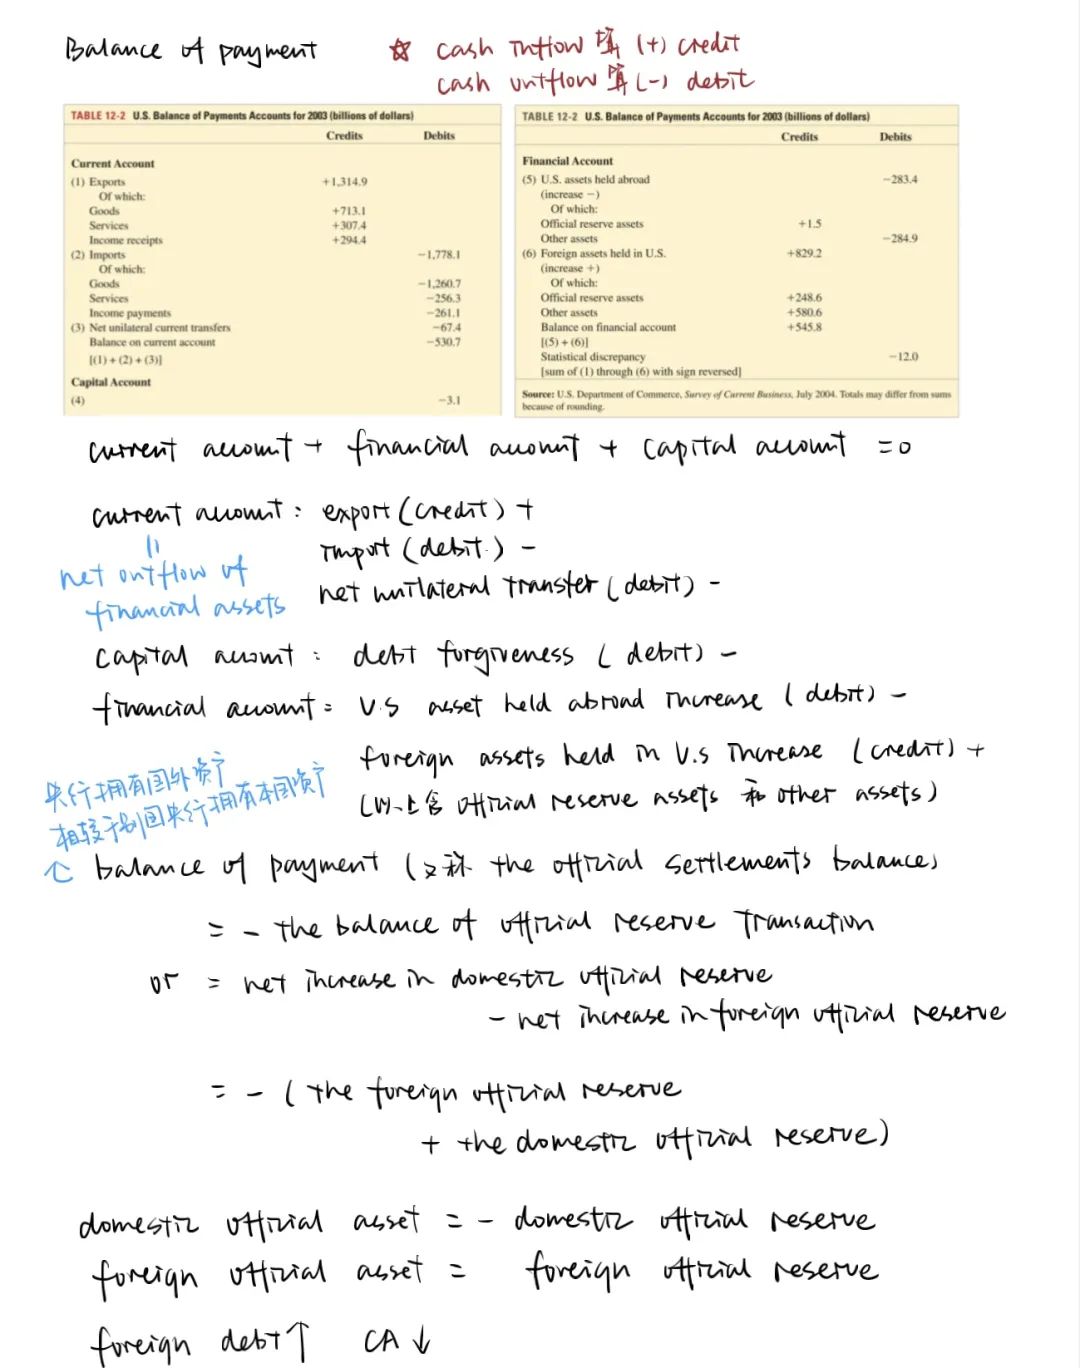 Balance of payment
☆ cash inflow 算 (+) credit
cash outflow 算 (-) debit
TABLE 12-2 U.S. Balance of Payments Accounts for 2003 (billions of dollars)
Credits Debits
Current Account
(1) Exports +1,314.9
Of which:
Goods +713.1
Services +307.4
Income receipts +294.4
(2) Imports −1,778.1
Of which:
Goods −1,260.7
Services −256.3
Income payments −261.1
(3) Net unilateral current transfers −67.4
Balance on current account −530.7
[(1) + (2) + (3)]
Capital Account
(4) −3.1
TABLE 12-2 U.S. Balance of Payments Accounts for 2003 (billions of dollars)
Credits Debits
Financial Account
(5) U.S. assets held abroad −283.4
(increase −)
Of which:
Official reserve assets +1.5
Other assets −284.9
(6) Foreign assets held in U.S. +829.2
(increase +)
Of which:
Official reserve assets +248.6
Other assets +580.6
Balance on financial account +545.8
[(5) + (6)]
Statistical discrepancy −12.0
[sum of (1) through (6) with sign reversed]
Source: U.S. Department of Commerce, Survey of Current Business, July 2004. Totals may differ from sums
because of rounding.
current account + financial account + capital account = 0
current account : export (credit) +
import (debit) -
net unilateral transfer (debit) -
=
net outflow of
financial assets
capital account : debt forgiveness (debit) -
financial account : U.S asset held abroad increase (debit) -
foreign assets held in U.S increase (credit) +
(以上含 official reserve assets 和 other assets)
央行拥有国外资产
相较于别国央行拥有本国资产
↑ balance of payment (又称 the official settlements balance)
= - the balance of official reserve transaction
or = net increase in domestic official reserve
- net increase in foreign official reserve
= - (the foreign official reserve
+ the domestic official reserve)
domestic official asset = - domestic official reserve
foreign official asset = foreign official reserve
foreign debt ↑ CA ↓